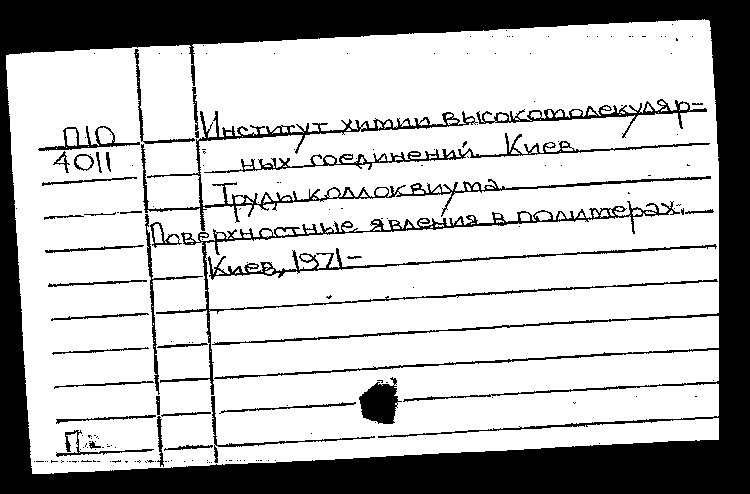 П10
4011
Институт химии высокомолекуляр-
ных соединений. Киев.
Труды коллоквиума.
Поверхностные явления в полимерах.
Киев, 1971-